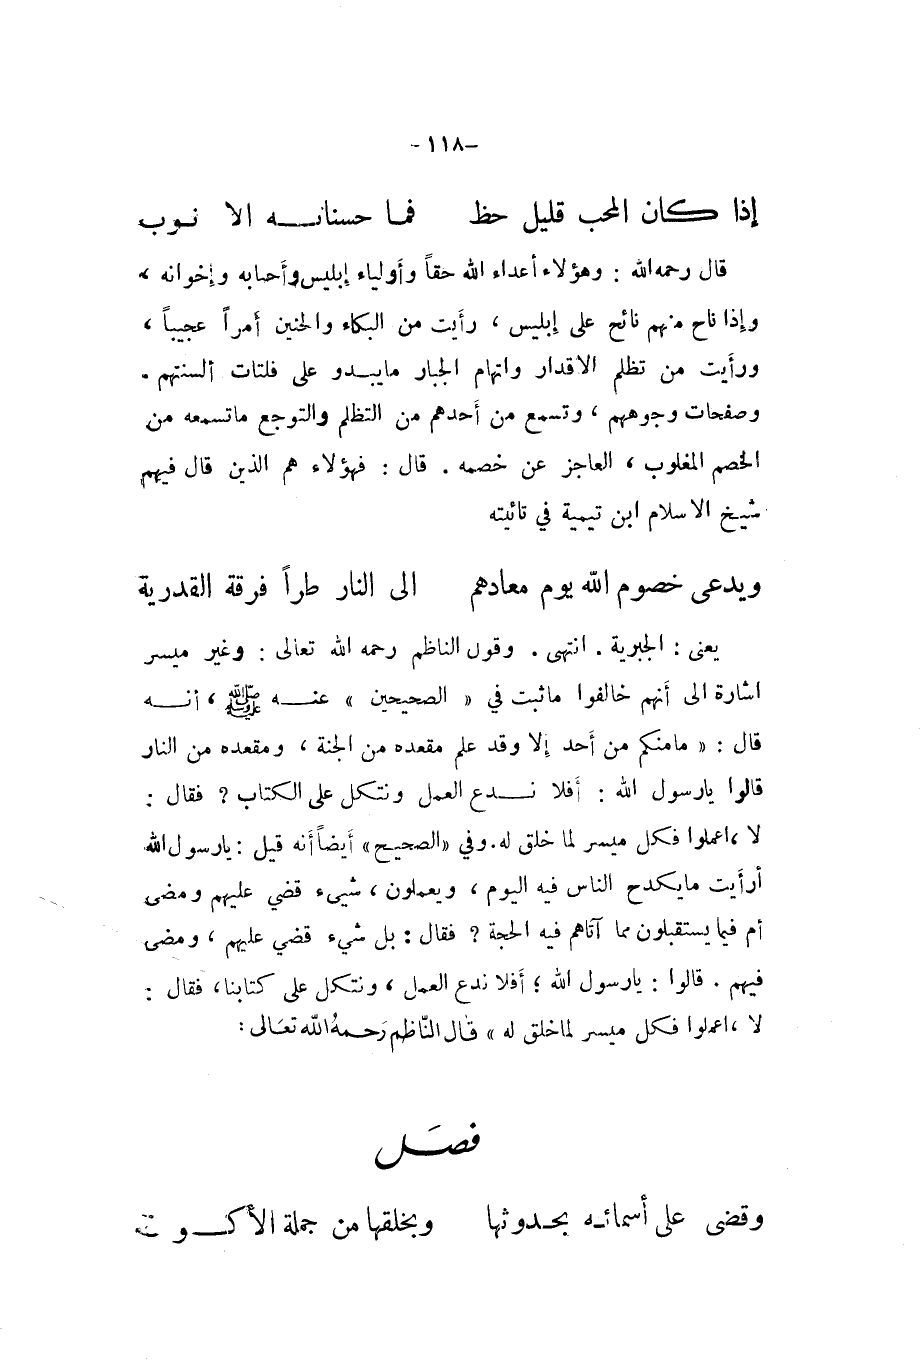 -١١٨-
إذا كان المحب قليل حظ فما حسناته الا نوب
قال رحمه الله : وهؤلاء أعداء الله حقاً وأولياء إبليس وأحبابه وإخوانه ،
وإذا ناح منهم نائح على إبليس ، رأيت من البكاء والحنين أمراً عجيباً ،
ورأيت من تظلم الاقدار واتهام الجبار مايبدو على فلتات ألسنتهم .
وصفحات وجوههم ، وتسمع من أحدهم من التظلم والتوجع ماتسمعه من
الخصم المغلوب ، العاجز عن خصمه . قال : فهؤلاء هم الذين قال فيهم
شيخ الاسلام ابن تيمية في تائيته
ويدعى خصوم الله يوم معادهم الى النار طراً فرقة القدرية
يعنى : الجبرية . انتهى . وقول الناظم رحمه الله تعالى : وغير ميسر
اشارة الى أنهم خالفوا ماثبت في « الصحيحين » عنه ﷺ ، أنه
قال : « مامنكم من أحد إلا وقد علم مقعده من الجنة ، ومقعده من النار
قالوا يارسول الله : أفلا ندع العمل ونتكل على الكتاب ? فقال :
لا ،اعملوا فكل ميسر لما خلق له.وفي «الصحيح» أيضاً أنه قيل : يارسول الله
أرأيت مايكدح الناس فيه اليوم ، ويعملون ، شيىء قضي عليهم ومضى
أم فيما يستقبلون مما آتاهم فيه الحجة ? فقال : بل شيء قضي عليهم ، ومضى
فيهم . قالوا : يارسول الله ؛ أفلا ندع العمل ، ونتكل على كتابنا، فقال :
لا ،اعملوا فكل ميسر لماخلق له » قال النّاظم رَحمهُ الله تعَالى :
فصَل
وقضى على أسمائه بحدوثها وبخلقها من جملة